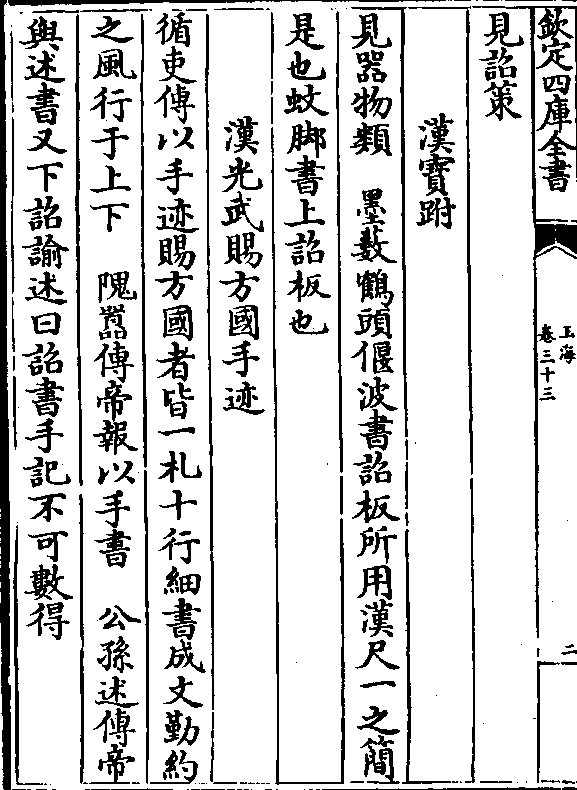 欽定四庫全書
玉海
卷三十三
二
見詔策
漢寶跗
見器物類　墨藪鶴頭偃波書詔板所用漢尺一之簡
是也蚊脚書上詔板也
漢光武賜方國手迹
循吏傳以手迹賜方國者皆一札十行細書成文勤約
之風行于上下　隗囂傳帝報以手書　公孫述傳帝
與述書又下詔諭述曰詔書手記不可數得